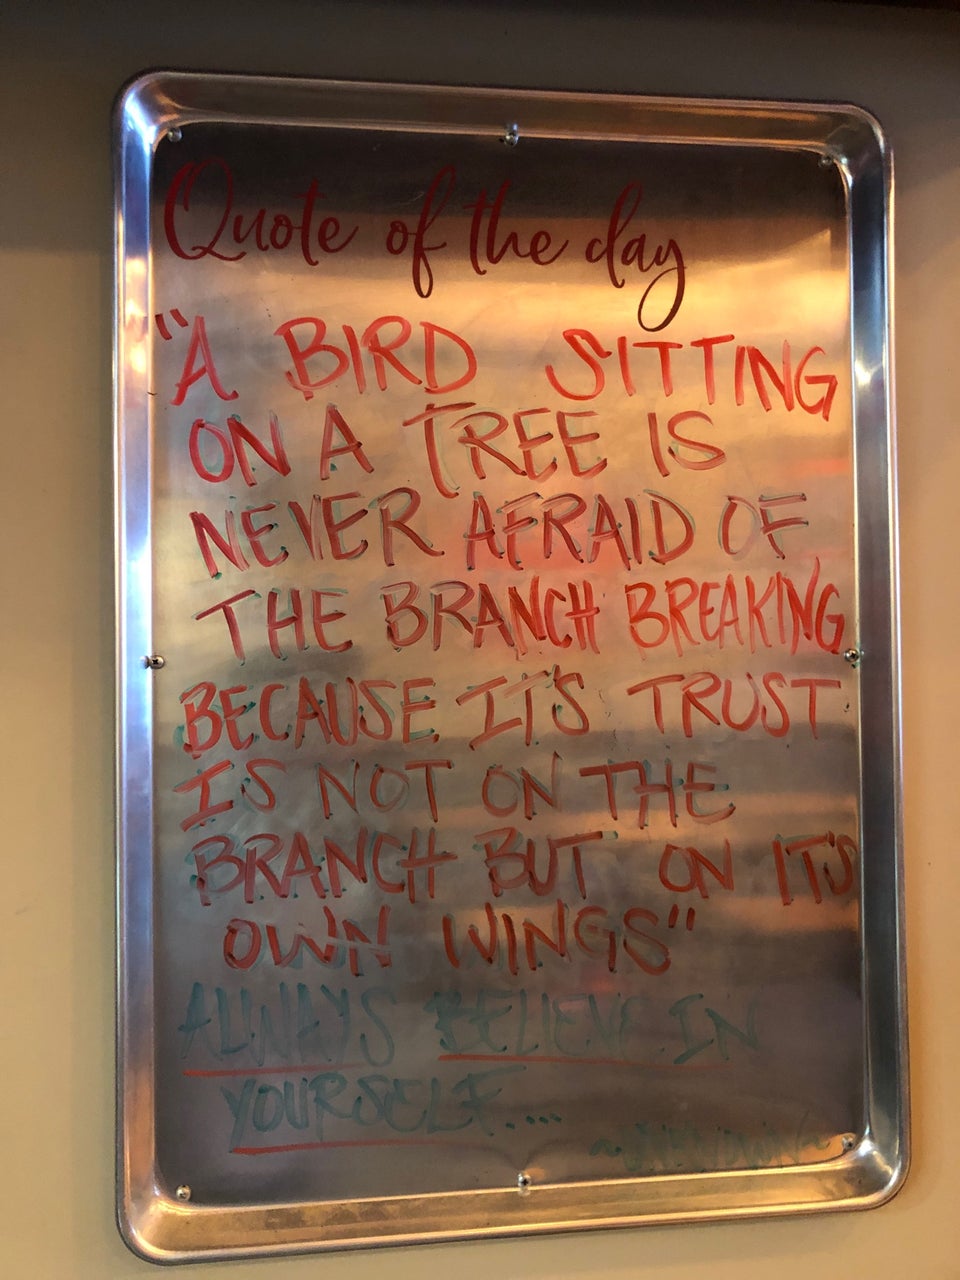 Quote of the day
"A BIRD SITTING
ON A TREE IS
NEVER AFRAID OF
THE BRANCH BREAKING
BECAUSE IT'S TRUST
IS NOT ON THE
BRANCH BUT ON IT'S
OWN WINGS"
ALWAYS BELIEVE IN
YOURSELF....
~UNKNOWN~